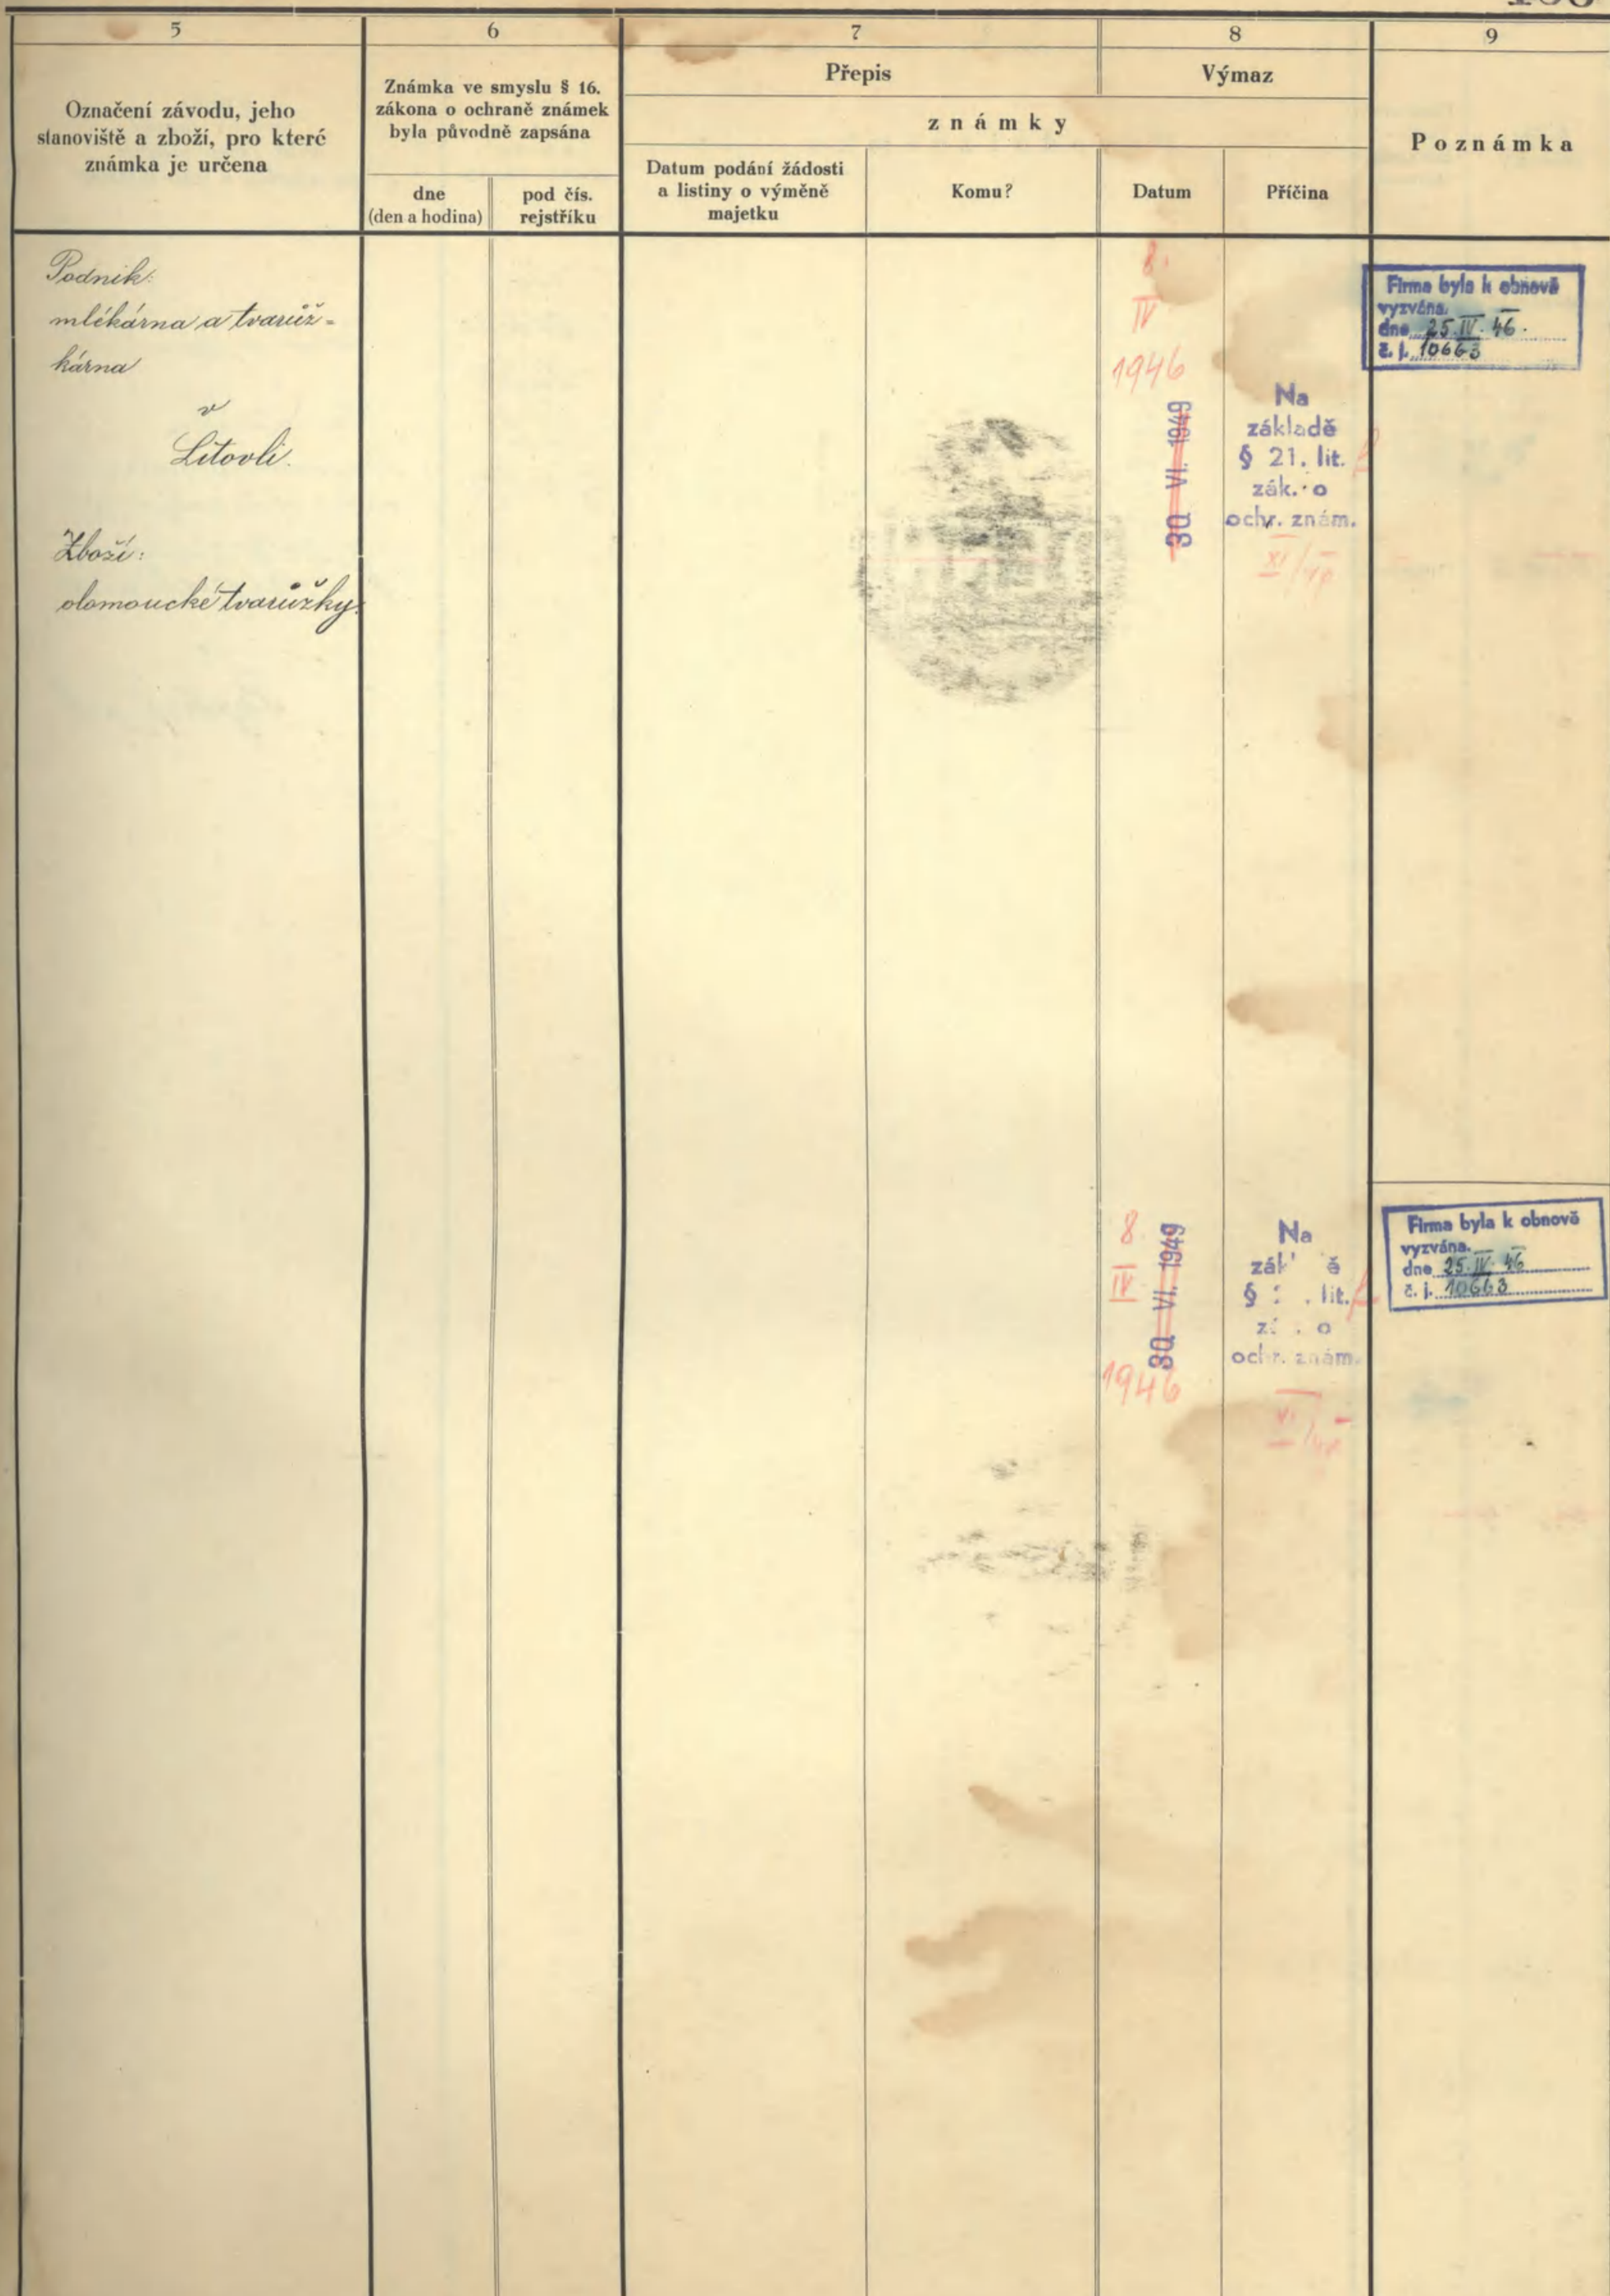 5
6
7
8
9
Označení závodu, jeho
stanoviště a zboží, pro které
známka je určena
Známka ve smyslu § 16.
zákona o ochraně známek
byla původně zapsána
dne
(den a hodina)
pod čís.
rejstříku
Přepis
Výmaz
známky
Datum podání žádosti
a listiny o výměně
majetku
Komu?
Datum
Příčina
Poznámka
Podnik:
mlékárna a tvarůž-
kárna
v
Litovli.
Zboží:
olomoucké tvarůžky.
8.
IV
1946
30. VI. 1949
Na
základě
§ 21. lit.
zák. o
ochr. znám.
Firma byla k obnově
vyzvána.
dne 25.IV.46.
č. j. 10663
8.
IV
1946
30. VI. 1949
Na
§ lit.
o
ochr. znám.
Firma byla k obnově
vyzvána.
dne 25.IV.46
č. j. 10663